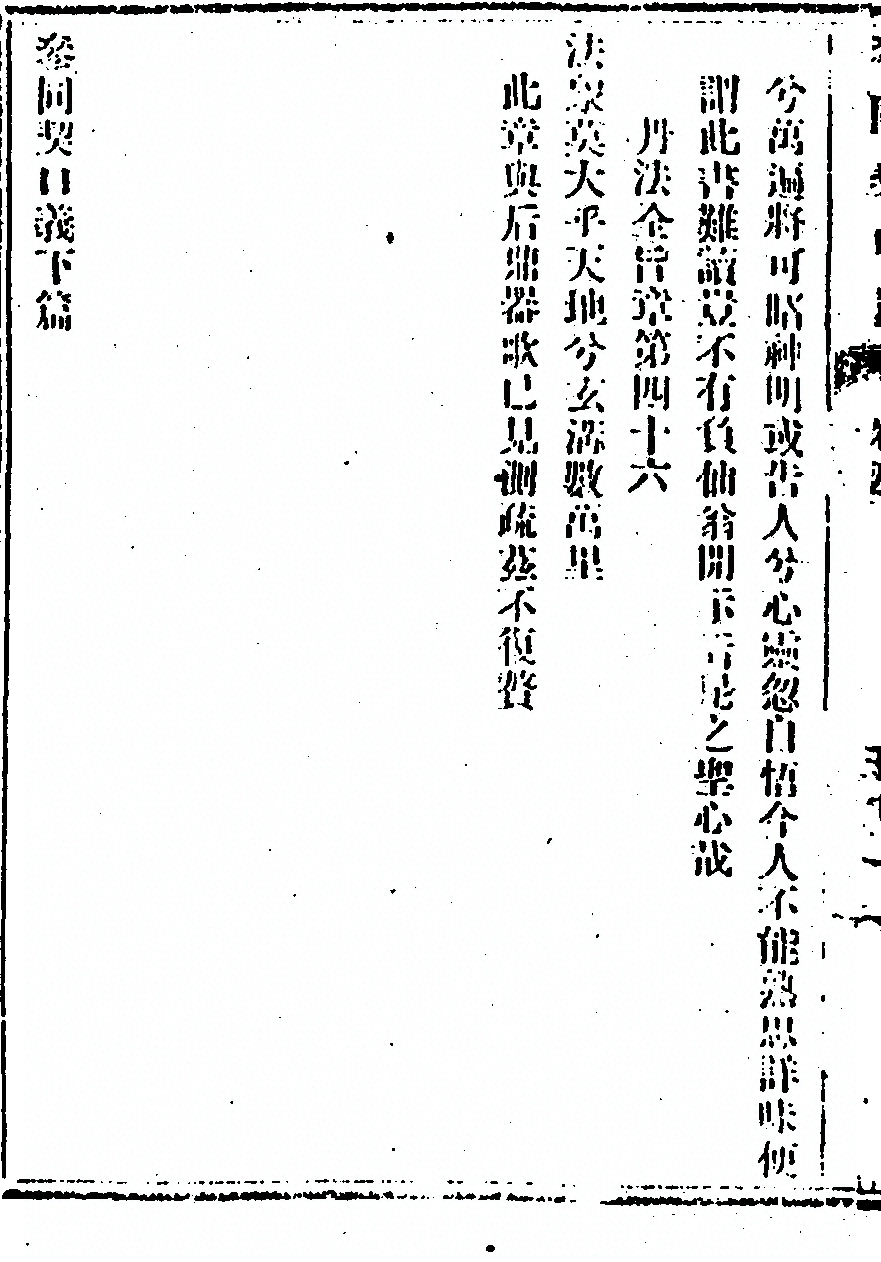 兮萬遍將可睹神明或告人兮心靈忽自悟今人不能熟思詳味便
謂此書難讀豈不有負仙翁開示吾是之聖心哉
丹法全旨章第四十六
法象莫大乎天地兮玄溝數萬里
此章與后鼎器歌已見測疏茲不復贅
參同契口義下篇